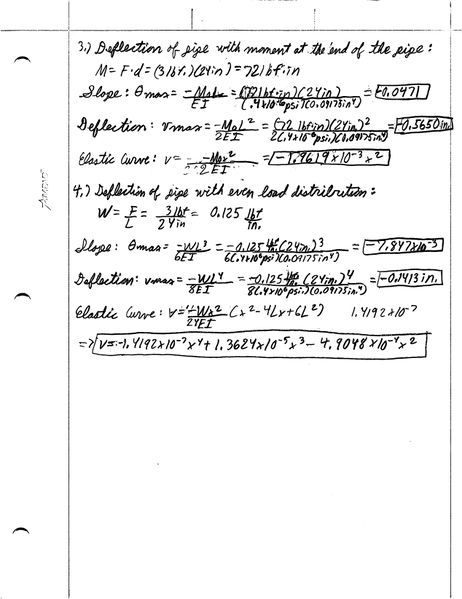 3.) Deflection of pipe with moment at the end of the pipe:
M = F·d = (3 lbf.)(24in) = 72 lbf·in
Slope: θmax = -MoL/EI = (72 lbf·in)(24in)/(.4×10^6 psi)(0.09175in^4) = -0.0471
Deflection: vmax = -MoL^2/2EI = (72 lbf·in)(24in)^2/2(.4×10^6 psi)(0.09175in^4) = -0.5650in
Elastic Curve: v = -Mox^2/2EI = -1.9619×10^-3 x^2
4.) Deflection of pipe with even load distribution:
W = F/L = 3 lbf/24in = 0.125 lbf/in.
Slope: θmax = -WL^3/6EI = -0.125 lbf/in. (24in.)^3/6(.4×10^6 psi.)(0.09175in^4) = -7.847×10^-3
Deflection: vmax = -WL^4/8EI = -0.125 lbf/in. (24in.)^4/8(.4×10^6 psi.)(0.09175in^4) = -0.1413in.
Elastic Curve: v = -Wx^2/24EI (x^2-4Lx+6L^2) 1.4192×10^-7
=> v = -1.4192×10^-7 x^4 + 1.3624×10^-5 x^3 - 4.9048×10^-4 x^2